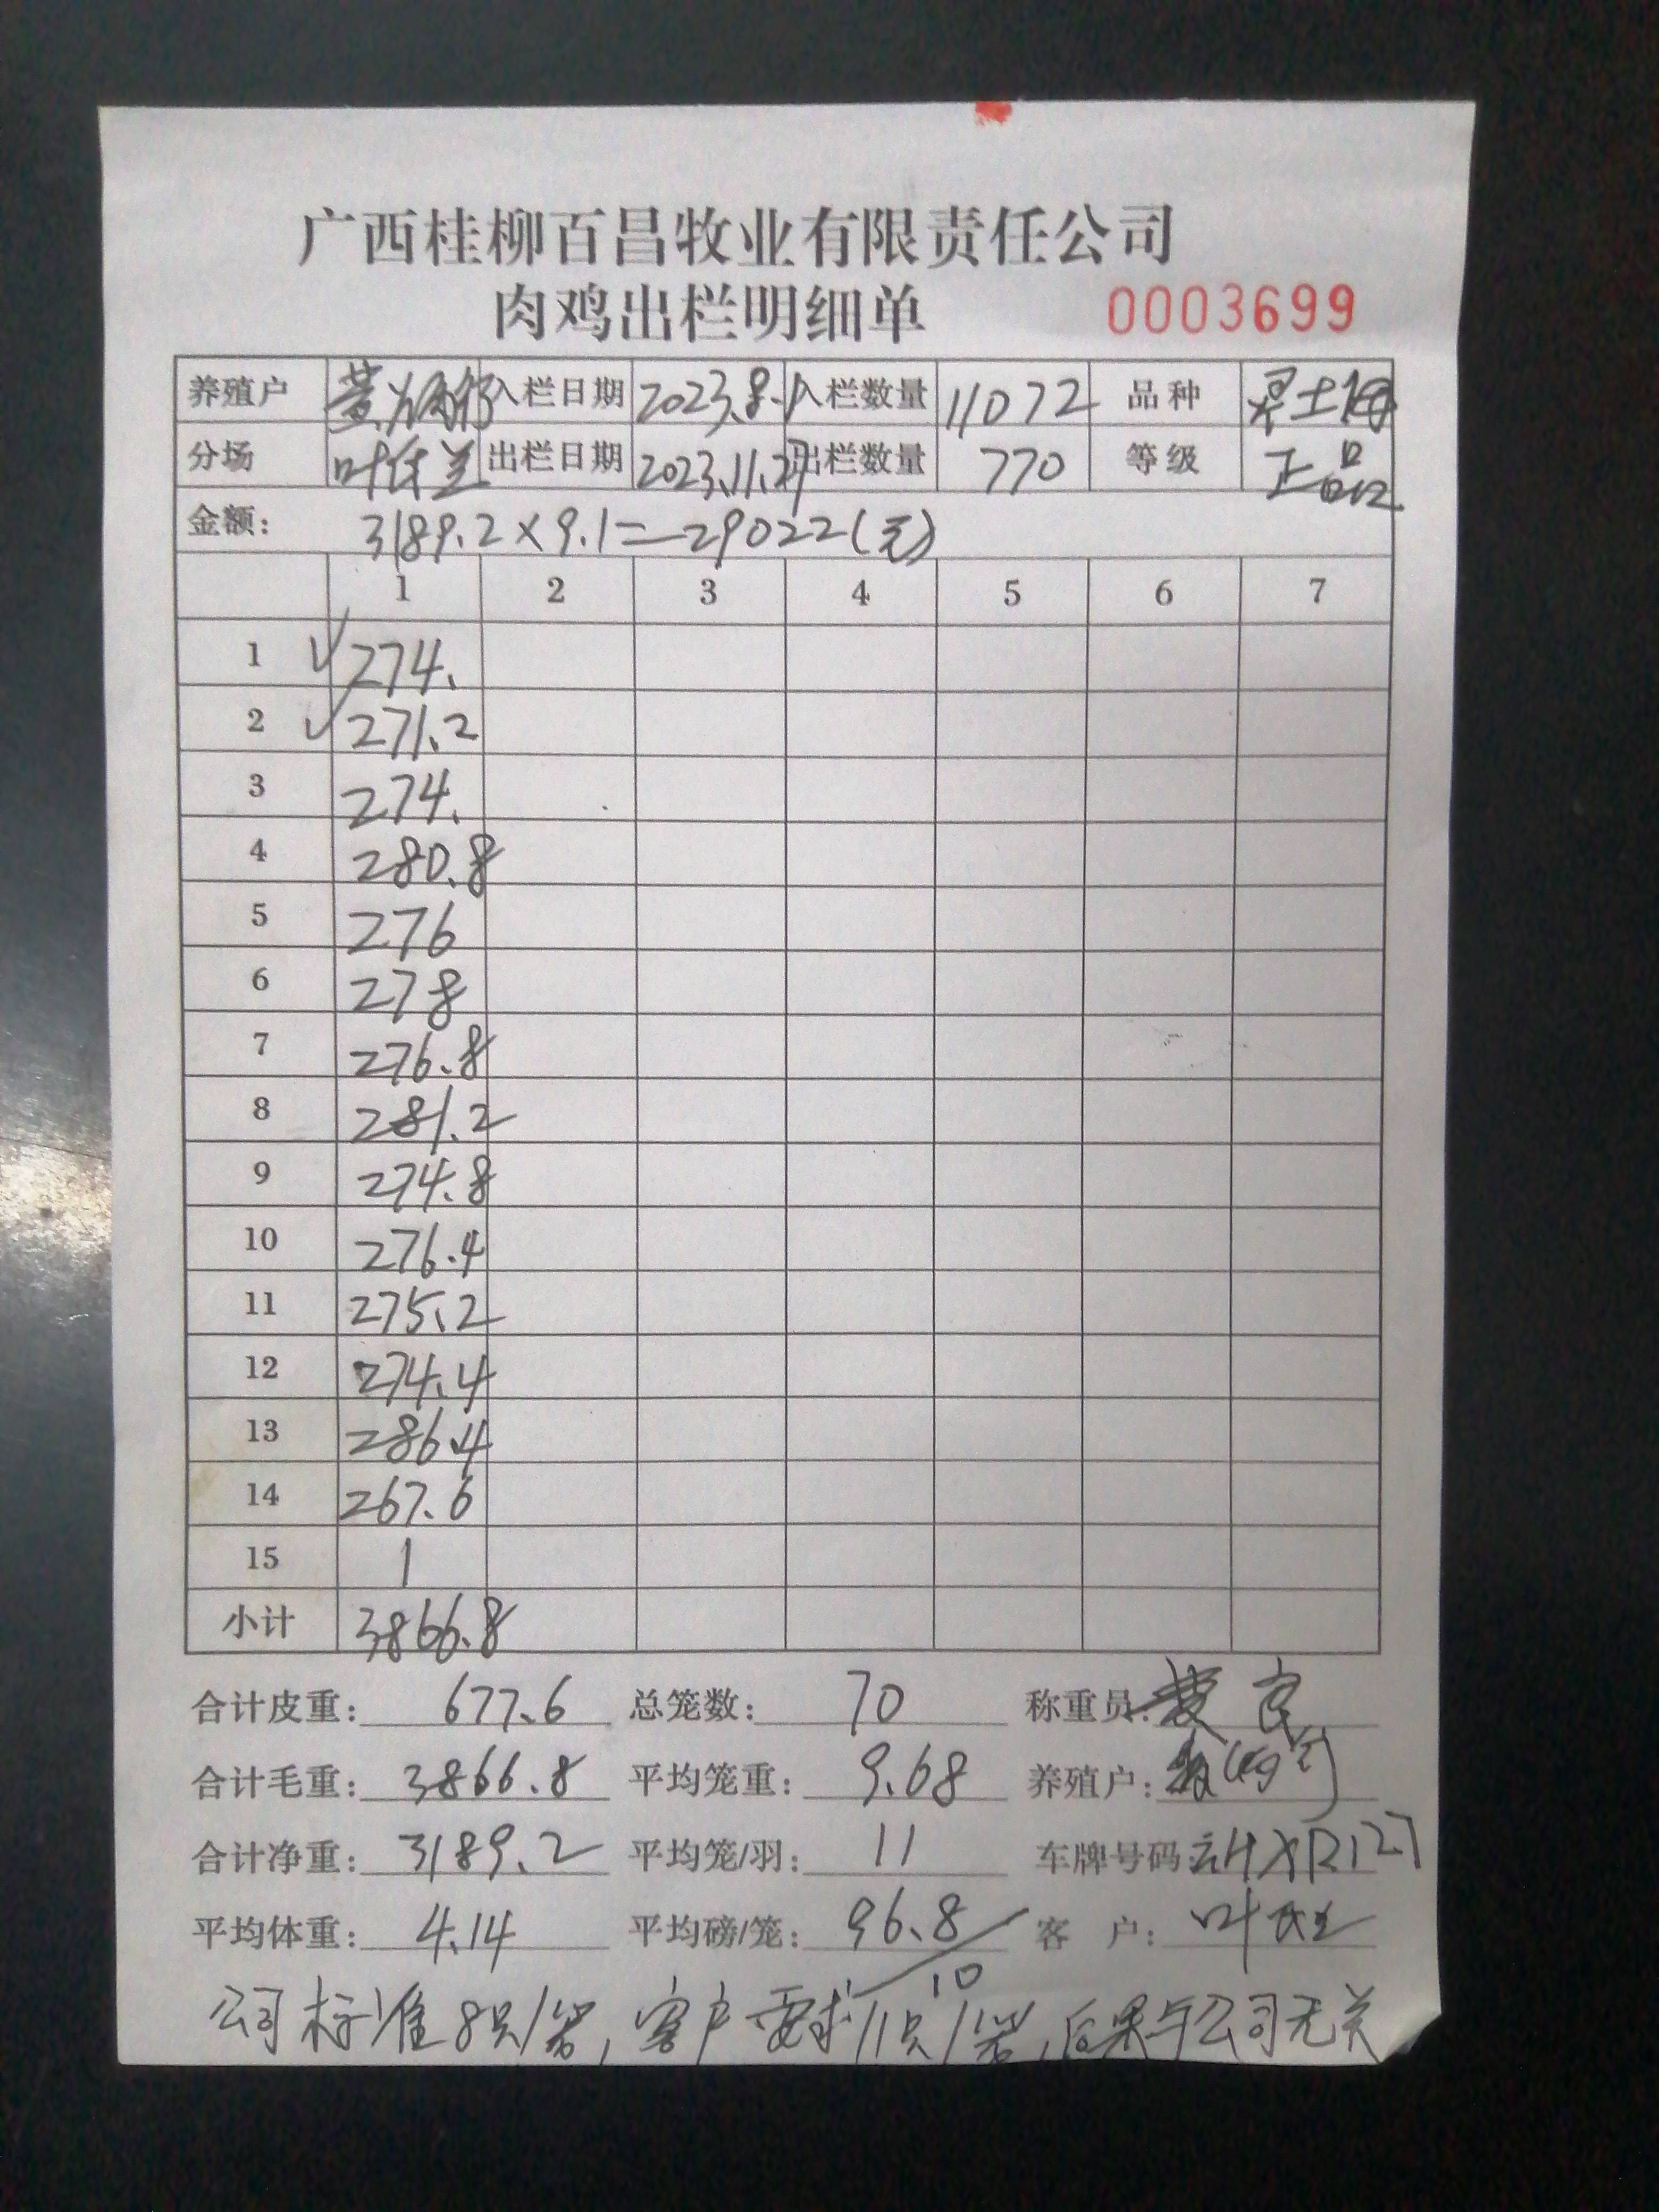 广西桂柳百昌牧业有限责任公司
肉鸡出栏明细单 0003699
养殖户 入栏日期 2023.8.1 入栏数量 11072 品种
分场 叶 出栏日期 2023.11.27 出栏数量 770 等级 正品
金额: 3189.2×9.1=29022(元)
1 2 3 4 5 6 7
1 274.
2 271.2
3 274.
4 280.8
5 276
6 278
7 276.8
8 281.2
9 274.8
10 276.4
11 275.2
12 274.4
13 286.4
14 267.6
15 1
小计 3866.8
合计皮重: 677.6 总笼数: 70 称重员:
合计毛重: 3866.8 平均笼重: 9.68 养殖户:
合计净重: 3189.2 平均笼/羽: 11 车牌号码:
平均体重: 4.14 平均磅/笼: 96.8 客户: 叶
10
公司标准8只/笼,客户要求11只/笼,后果与公司无关